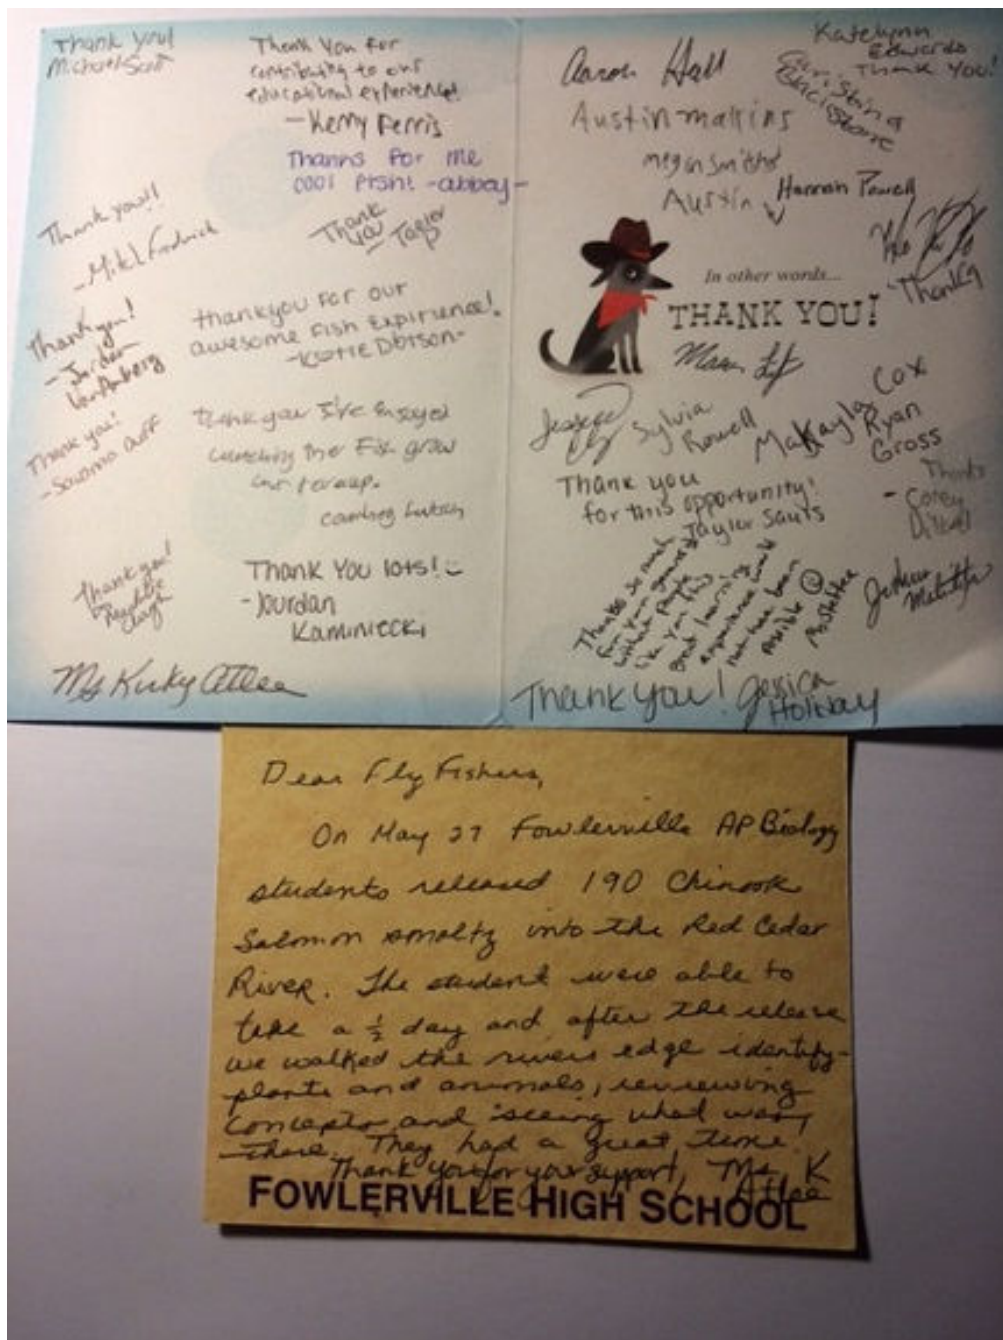 Thank you!
Michael Scott
Thank You for
contributing to our
educational experience!
-Kerry Ferris
Thanks for the
cool fish! -abbey-
Thank you!!
-Mikel
Thank
you Taylor
Thank you!
-Jordan
VanAmberg
thankyou for our
awesome fish Expirience!
-Katie Dotson-
Thank you!
-Savanna
thank you I've Enjoyed
watching the Fish grow
Thank you!
Thank You lots!
-Jourdan
Kaminiecki
Ms Kirky Atlee
Katelynn
Edwards
Thank You!
Aaron Hall
Christina
Austin
Megan
Austin V
Hannah Powell
Thanks
In other words...
THANK YOU!
Sylvia
Rowell
Makayla Cox
Ryan
Gross
Thanks
-Corey
Thank you
for this opportunity!
Taylor Sauts
Thanks so much
for your generosity
without people
like you this
great learning
experience would
not have been
possible
Ms Atlee
Joshua
Thank you! Jessica
Holiday
Dear Fly Fishers,
On May 27 Fowlerville AP Biology
students released 190 Chinook
Salmon smoltz into the Red Cedar
River. The student were able to
take a ½ day and after the release
we walked the rivers edge identify-
plants and animals, reviewing
concepts and seeing what was
there. They had a great time.
Thank you for your support, Ms. K
Atlee
FOWLERVILLE HIGH SCHOOL